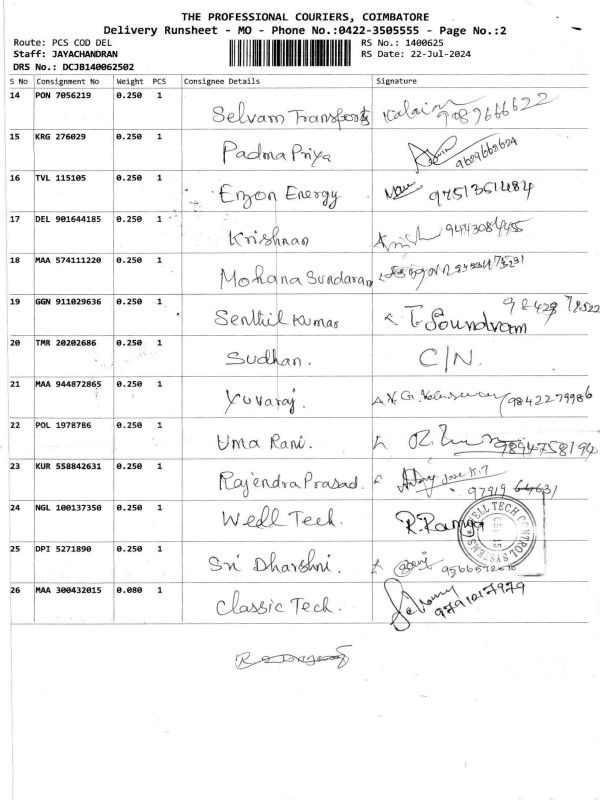 THE PROFESSIONAL COURIERS, COIMBATORE
Delivery Runsheet - MO - Phone No.:0422-3505555 - Page No.:2
Route: PCS COD DEL RS No.: 1400625
Staff: JAYACHANDRAN RS Date: 22-Jul-2024
DRS No.: DCJB140062502
S No Consignment No Weight PCS Consignee Details Signature
14 PON 7056219 0.250 1 Selvam Transports 9087666622
15 KRG 276029 0.250 1 Padma Priya 9629668624
16 TVL 115105 0.250 1 Enzon Energy 9751351484
17 DEL 901644185 0.250 1 Krishnan 9443084455
18 MAA 574111220 0.250 1 Mohana Sundaram
19 GGN 911029636 0.250 1 Senthil Kumar T. Soundram
20 TMR 20202686 0.250 1 Sudhan. C/N.
21 MAA 944872865 0.250 1 Yuvaraj. 9842279986
22 POL 1978786 0.250 1 Uma Rani. 9894758194
23 KUR 558842631 0.250 1 Rajendra Prasad. Antony Jose K.J 97919 64631
24 NGL 100137350 0.250 1 Well Tech. R. Ramya
WELL TECH CONTROL SYSTEMS
25 DPI 5271890 0.250 1 Sri Dharshni.
26 MAA 300432015 0.080 1 Classic Tech. 9791017979